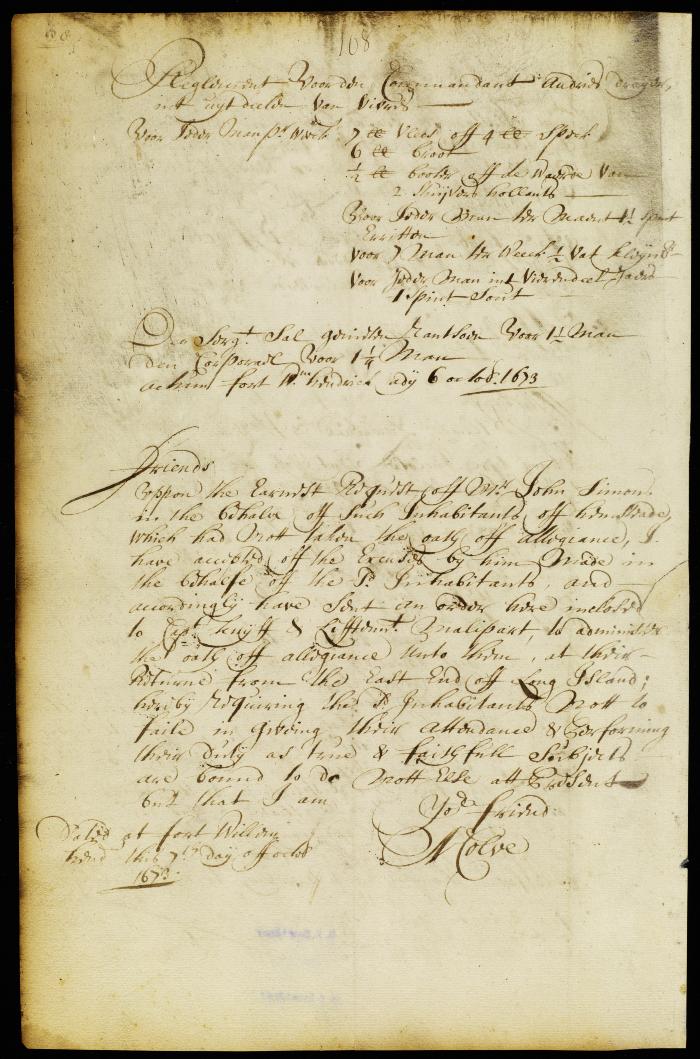 108
Reglement Voor den Commandant Andries draeyer,
int uytdeelen van Vivres
Voor Jeder Man pr. Week 7 ℔ Vlees off 4 ℔ Speck
6 ℔ broot
½ ℔ booter off de Waerde Van
2 Stuijvers hollants
Voor Jeder Man ter Maent 1½ spint
Erritten
voor 7 Man ter Weeck ½ Vat kleijn
voor Jeder Man int Vierendeel Jaers
1 Spint Sout
Den Sergt. Sal genieten Rantsoen Voor 1½ Man
den Corporael Voor 1¼ Man
actum fort Wm. hendrick ady 6 octob. 1673
friends
Vppon the Earnest Request off Mr. John Simons
in the behalve off Such Inhabitants off hemstead,
which had Nott taken the oath off allegiance, I
have accepted off the Excuses by him Made in
the behalfe off the Sd. Inhabitants, and
accordingly have Sent an order here inclosed
to Capt. Knijff & Lifftent. Malipart, to administer
the oath off allegiance Unto them, at their
Returne from the East End off Long Island;
hereby Requiring the Sd. Inhabitants Nott to
faile in Giveing their attendance & Performing
their Duty as true & faithfull Subjects
are bound to do Nott Else att Present
but that I am
Yor. friend
Dated at fort Willem
hend this 7th day off octob
1673.
A Colve